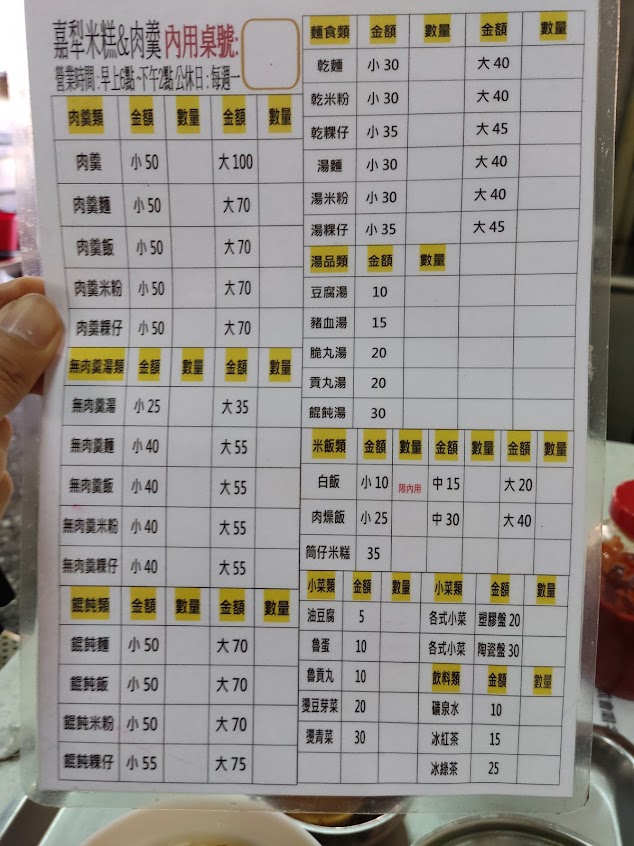 嘉犁米糕&肉羹 內用桌號:
營業時間:早上6點~下午2點 公休日:每週一
肉羹類 金額 數量 金額 數量
肉羹 小50 大100
肉羹麵 小50 大70
肉羹飯 小50 大70
肉羹米粉 小50 大70
肉羹粿仔 小50 大70
無肉羹湯類 金額 數量 金額 數量
無肉羹湯 小25 大35
無肉羹麵 小40 大55
無肉羹飯 小40 大55
無肉羹米粉 小40 大55
無肉羹粿仔 小40 大55
餛飩類 金額 數量 金額 數量
餛飩麵 小50 大70
餛飩飯 小50 大70
餛飩米粉 小50 大70
餛飩粿仔 小55 大75
麵食類 金額 數量 金額 數量
乾麵 小30 大40
乾米粉 小30 大40
乾粿仔 小35 大45
湯麵 小30 大40
湯米粉 小30 大40
湯粿仔 小35 大45
湯品類 金額 數量
豆腐湯 10
豬血湯 15
脆丸湯 20
貢丸湯 20
餛飩湯 30
米飯類 金額 數量 金額 數量 金額 數量
白飯 小10 限內用 中15 大20
肉燥飯 小25 中30 大40
筒仔米糕 35
小菜類 金額 數量 小菜類 金額 數量
油豆腐 5 各式小菜 塑膠盤20
魯蛋 10 各式小菜 陶瓷盤30
魯貢丸 10 飲料類 金額 數量
燙豆芽菜 20 礦泉水 10
燙青菜 30 冰紅茶 15
冰綠茶 25